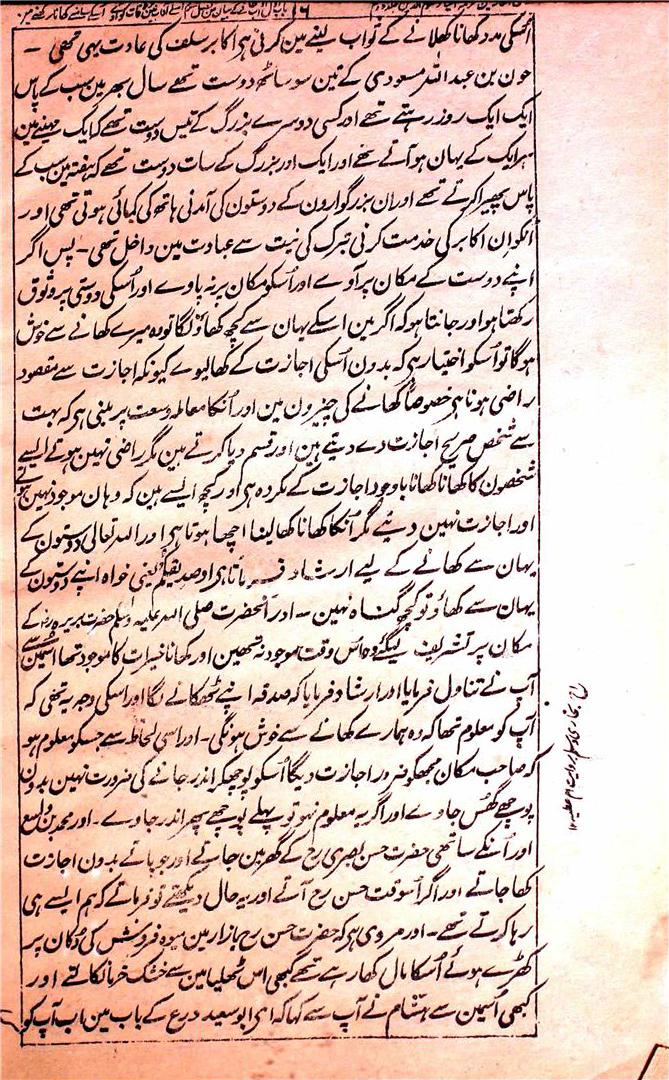 ۱۶
اُسکی مدد کھانا کھلانے کے ثواب لینے مین کرنی ہی اکابر سلف کی عادت یہی تھی –
عون بن عبد اللہ مسعودی کے تین سو ساٹھ دوست تھے سال بھر مین سب کے پاس
ایک ایک روز رہتے تھے اور کسی دوسرے بزرگ کے تیس دوست تھے کہ ایک مہینے مین
ہر ایک کے یہان ہو آتے تھے اور ایک اور بزرگ کے سات دوست تھے کہ ہفتہ مین سب کے
پاس پھیرا کرتے تھے اور ان بزرگوارون کے دوستون کی آمدنی ہاتھ کی کمائی ہوتی تھی اور
اُنکو ان اکابر کی خدمت کرنی تبرک کی نیت سے عبادت مین داخل تھی – پس اگر
اپنے دوست کے مکان پر آوے اور اُسکو مکان پر نہ پاوے اور اُسکی دوستی پر وثوق
رکھتا ہو اور جانتا ہو کہ اگر مین اسکے یہان سے کچھ کھاؤنگا تو وہ میرے کھانے سے خوش
ہوگا تو اُسکو اختیار ہی کہ بدون اُسکی اجازت کے کھا لیوے کیونکہ اجازت سے مقصود
راضی ہونا ہی خصوصاً کھانے کی چیزون مین اور اُنکا معاملہ وسعت پر مبنی ہی کہ بہت
سے شخص صریح اجازت دے دیتے ہین اور قسم دیا کرتے ہین مگر راضی نہین ہوتے ایسے
شخصون کا کھانا کھانا باوجود اجازت کے مکروہ ہی اور کچھ ایسے ہین کہ وہان موجود نہین ہوتے
اور اجازت نہین دیئے مگر اُنکا کھانا کھا لینا اچھا ہوتا ہی اور اللہ تعالی دوستون کے
یہان سے کھانے کے لیے ارشاد فرماتا ہی او صدیقکم یعنی خواہ اپنے دوستون کے
یہان سے کھاؤ تو کچھ گناہ نہین – اور آنحضرت صلی اللہ علیہ وسلم حضرت بریرہ رض کے
مکان پر تشریف لیگئے وہ اُس وقت موجود نہ تھین اور کھانا خیرات کا موجود تھا اُسمین سے
آپ نے تناول فرمایا اور ارشاد فرمایا کہ صدقہ اپنے ٹھکانے لگا اور اسکی وجہ یہ تھی کہ
آپ کو معلوم تھا کہ وہ ہمارے کھانے سے خوش ہونگی – اور اسی لحاظ سے جسکو معلوم ہو
کہ صاحب مکان مجھکو ضرور اجازت دیگا اُسکو پوچھکر اندر جانے کی ضرورت نہین بدون
پوچھے گھس جاوے اور اگر یہ معلوم نہو تو پہلے پوچھے پھر اندر جاوے – اور محمد بن واسع
اور اُنکے ساتھی حضرت حسن بصری رح کے گھر مین جاتے اور جو پاتے بدون اجازت
کھا جاتے اور اگر اُسوقت حسن رح آتے اور یہ حال دیکھتے تو فرماتے کہ ہم ایسے ہی
رہا کرتے تھے – اور مروی ہی کہ حضرت حسن رح بازار مین میوہ فروش کی دُکان پر
کھڑے ہوئے اُسکا مال کھا رہے تھے کبھی اس ٹھیلیا مین سے خشک خرما نکالتے اور
کبھی اُسمین سے ہشام نے آپ سے کہا کہ ای ابو سعید ورع کے باب مین اب آپ کو